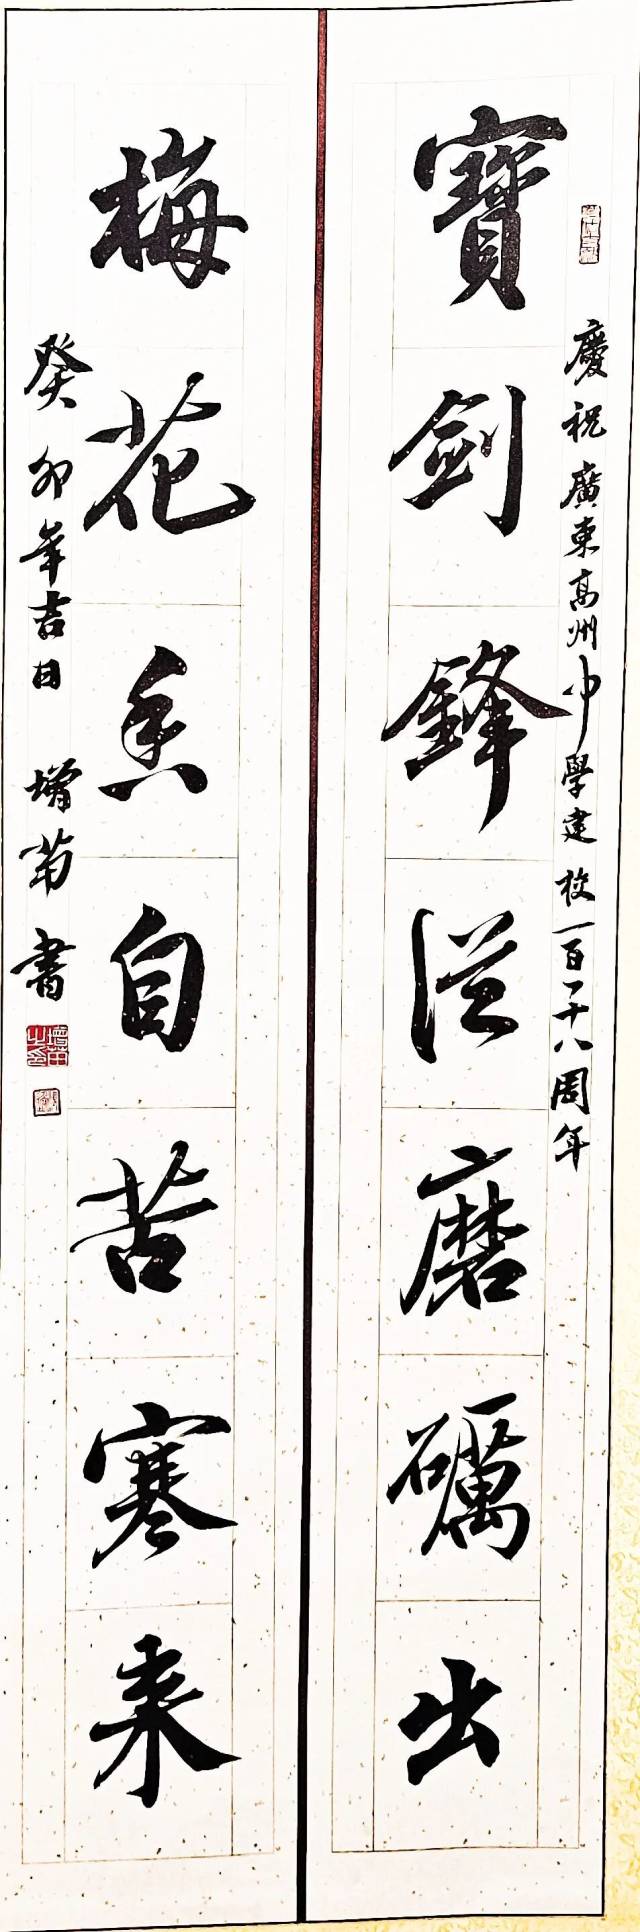 慶祝廣東高州中學建校一百一十八周年
寶劍鋒從磨礪出
梅花香自苦寒來
癸卯年吉日 增苗書
增苗之印